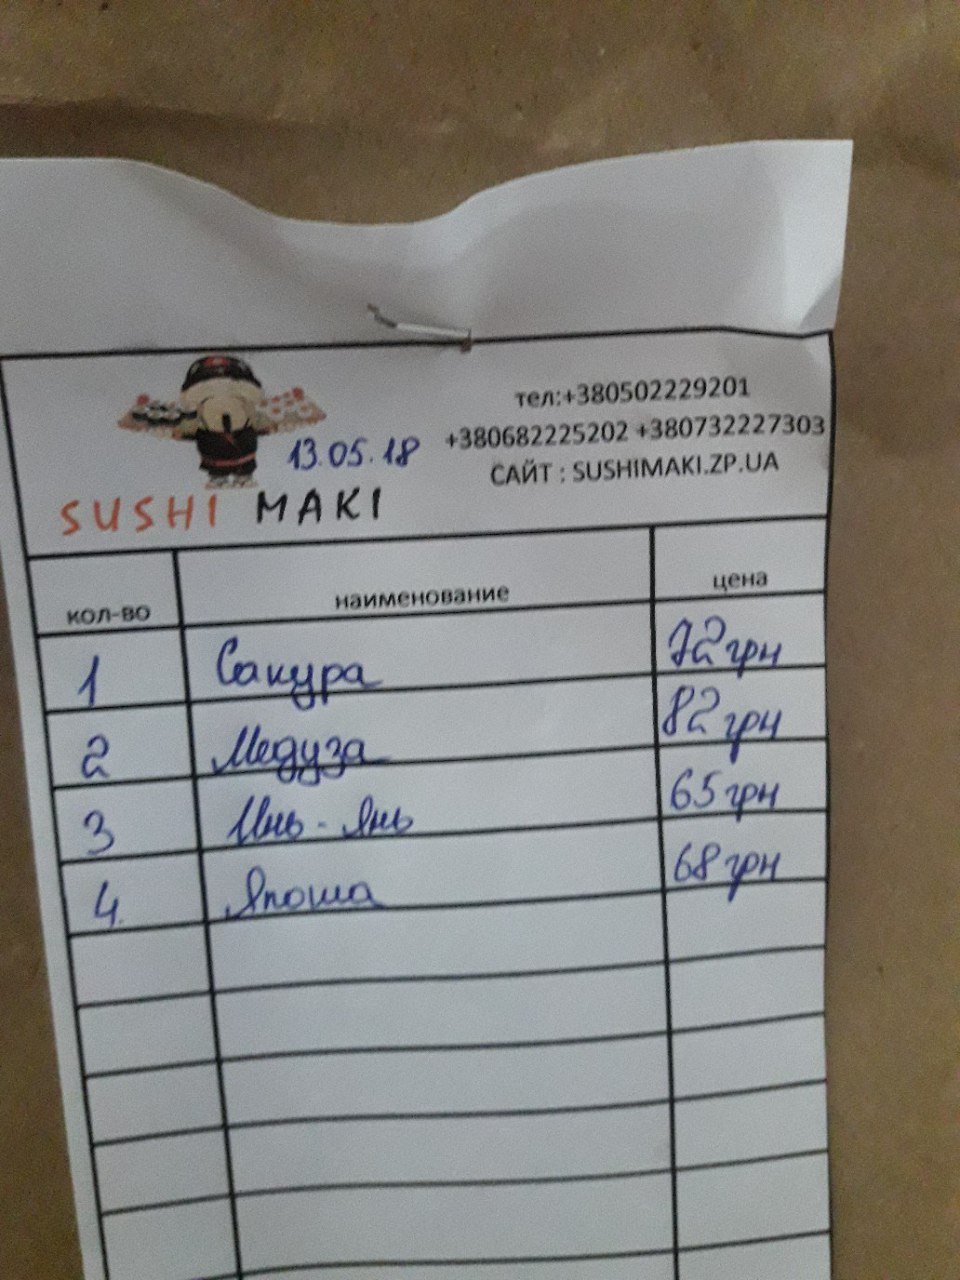 тел:+380502229201
13.05.18 +380682225202 +380732227303
САЙТ : SUSHIMAKI.ZP.UA
SUSHI MAKI
кол-во наименование цена
1 Сакура 72 грн
2 Медуза 82 грн
3 Инь - Янь 65 грн
4. Япоша 68 грн